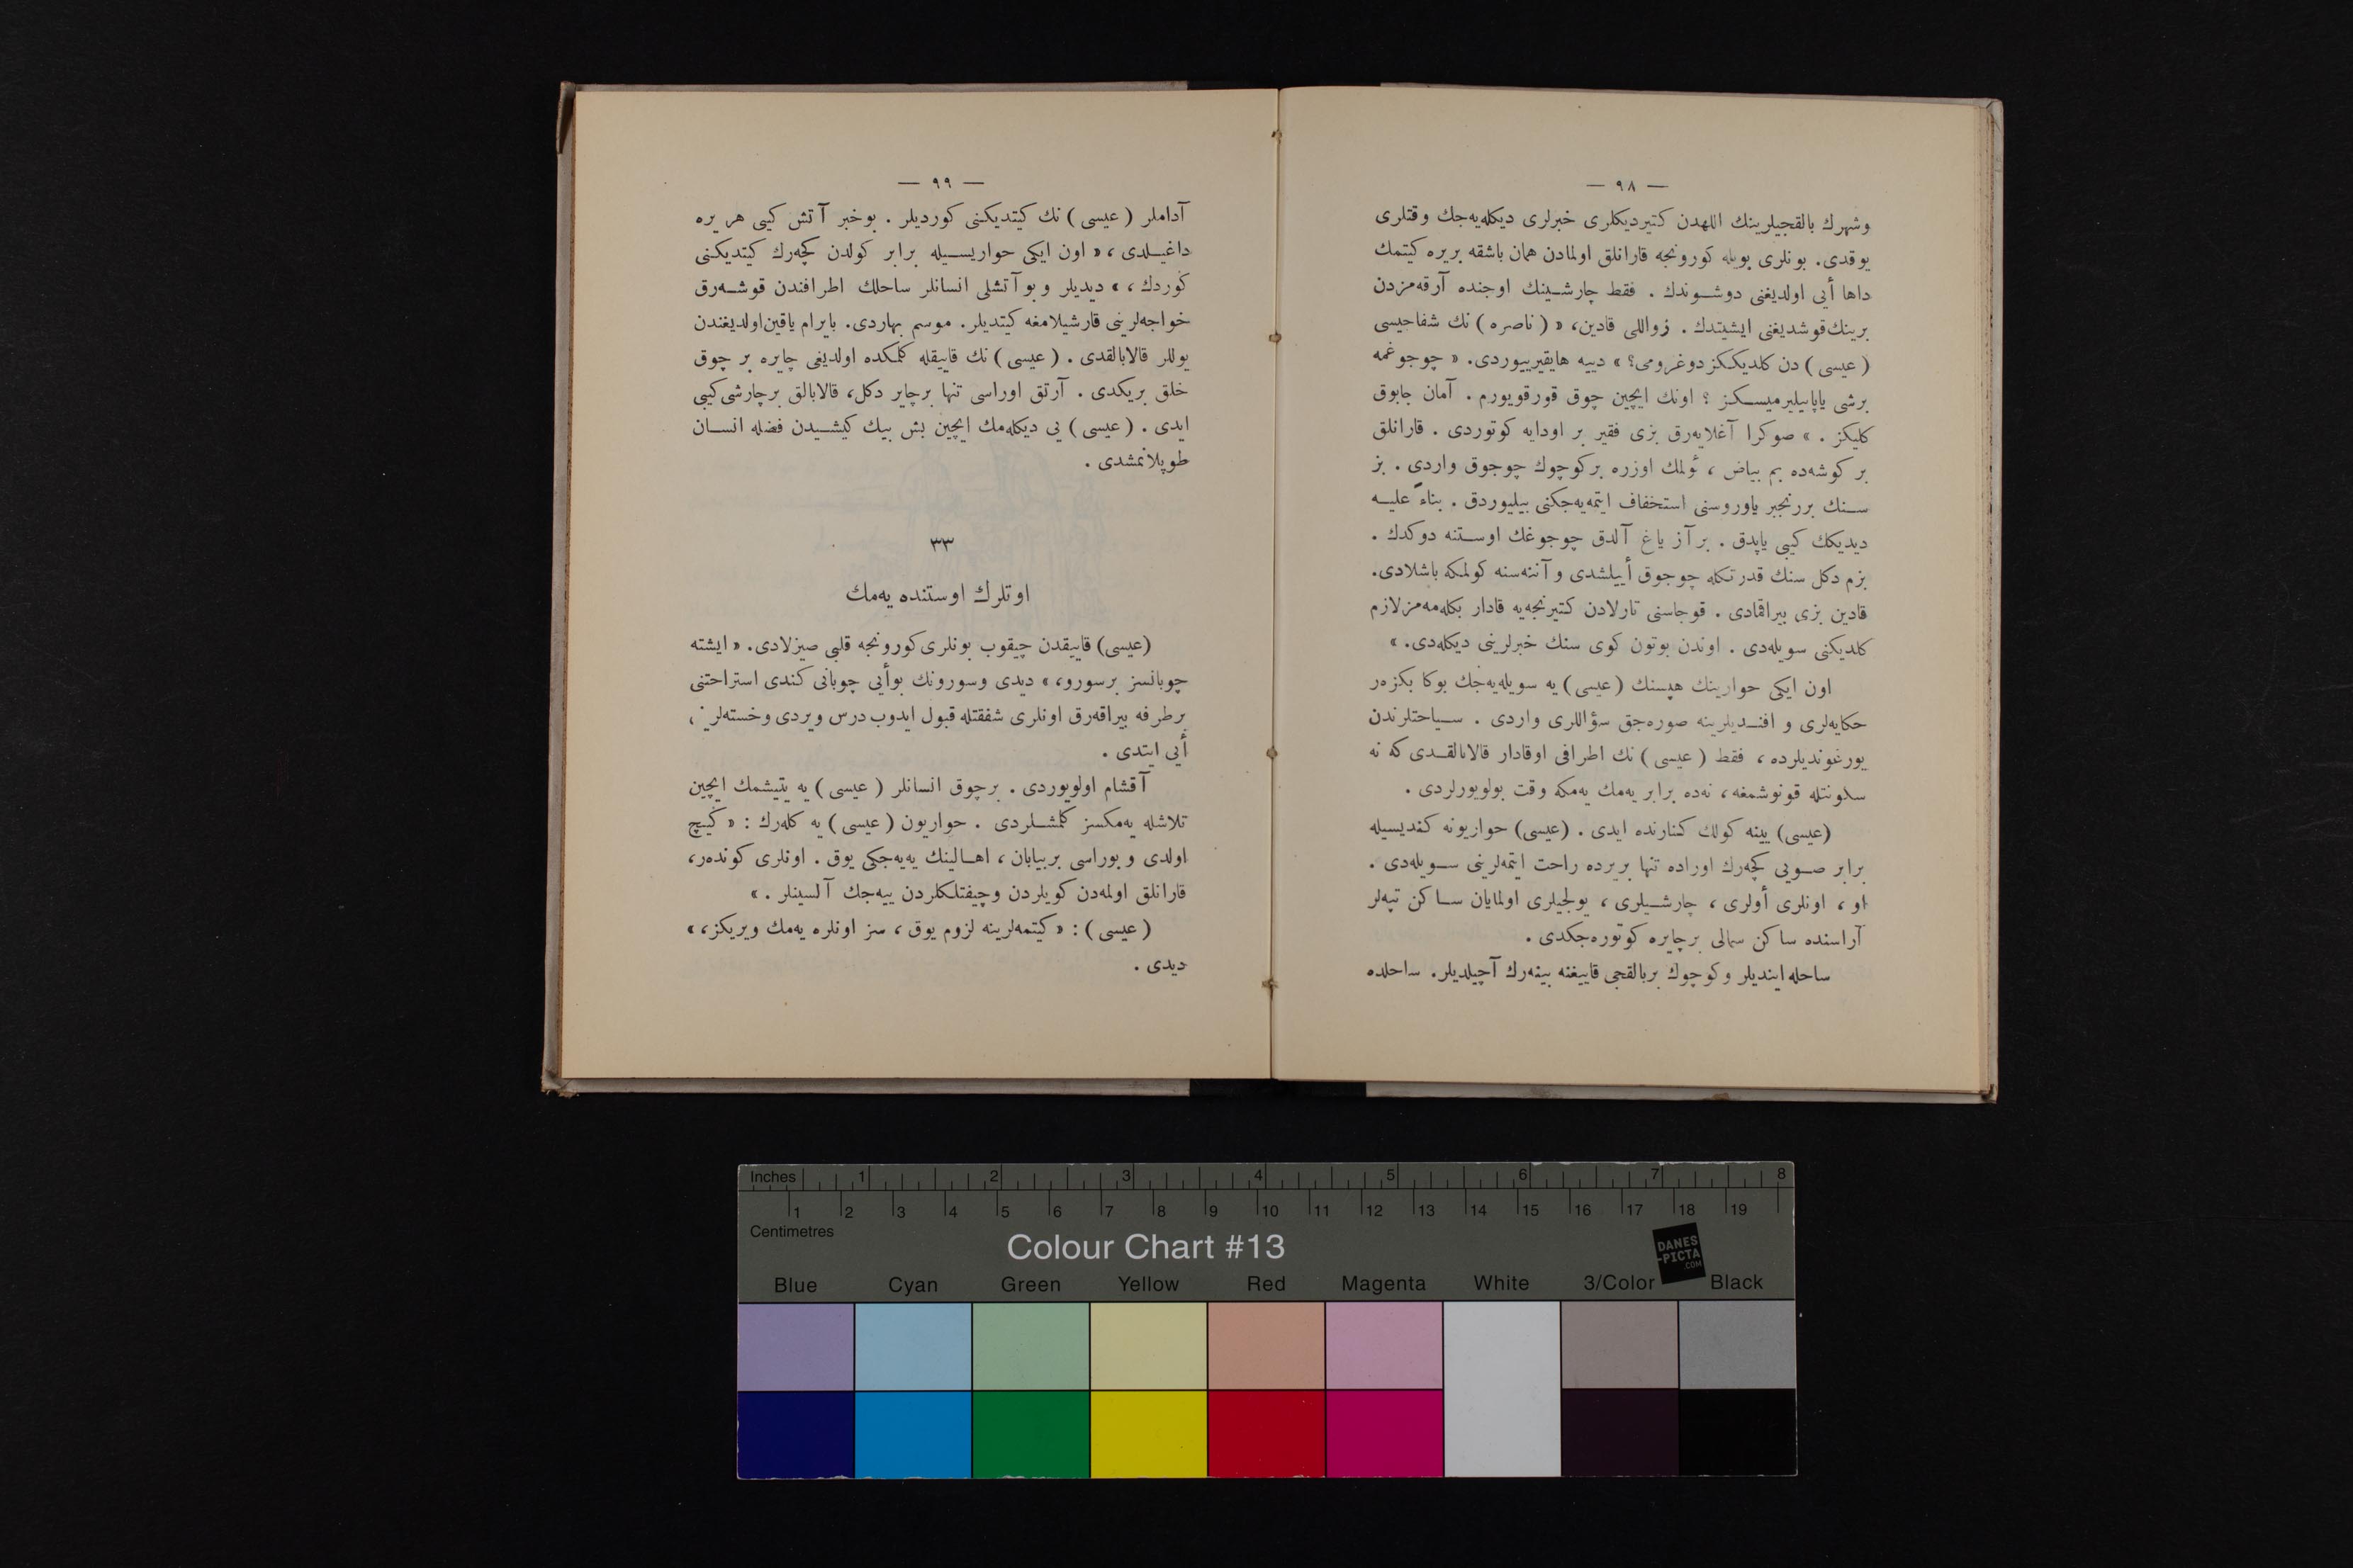 — ٩٨ —
وشهرك بالقجيلرينك اللهدن كتيرديكلری خبرلری ديكله‌يه‌جك وقتلری
يوقدی. بونلری بويله كورونجه قارانلق اولمادن همان باشقه بريره كيتمك
داها أيی اولديغنی دوشـوندك . فقط چارشـينك اوجنده آرقه‌مزدن
برينك قوشديغنی ايشيتدك . زواللی قادين، « (ناصره) نك شفاجيسی
(عيسی) دن كلديككز دوغرومی؟ » دييه هايقيرييوردی. « چوجوغمه
برشی ياپابيليرميسـكز ؟ اونك ايچين چوق قورقويورم . آمان چابوق
كليكز . » صوكرا آغلايه‌رق بزی فقير بر اودايه كوتوردی . قارانلق
بر كوشه‌ده بم بياض ، ئولمك اوزره بركوچوك چوجوق واردی . بز
سـنك بررنجبر ياوروسنی استخفاف ايتمه‌يه‌جكنی بيليوردق . بناءً عليـه
ديديكك كيبی ياپدق . بر آز ياغ آلدق چوجوغك اوسـتنه دوكدك .
بزم دكل سنك قدرتكله چوجوق أييلشدی و آننه‌سنه كولمكه باشلادی.
قادين بزی بيراقمادی . قوجاسنی تارلادن كتيرنجه‌يه قادار بكله‌مه‌مز لازم
كلديكنی سويله‌دی . اوندن بوتون كوی سنك خبرلرينی ديكله‌دی. »
اون ايكی حوارينك هپسنك (عيسی) يه سويله‌يه‌جك بوكا بكزه‌ر
حكايه‌لری و افنـديلرينه صوره‌جق سؤاللری واردی . سـياحتلرندن
يورغونديلرده ، فقط (عيسی) نك اطرافی اوقادار قالابالقـدی كه نه
سكونتله قونوشمغه، نه‌ده برابر يه‌مك يه‌مكه وقت بولويورلردی .
(عيسی) يينه كولك كنارنده ايدی . (عيسی) حواريونه كنديسيله
برابر صـويی كچه‌رك اوراده تنها بريرده راحت ايتمه‌لرينی سـويله‌دی .
او ، اونلری أولری ، چارشـيلری ، يولجيلری اولمايان سـاكن تپه‌لر
آراسنده ساكن سمالی برچايره كوتوره‌جكدی .
ساحله اينديلر و كوچوك بربالقجی قاييغنه بينه‌رك آچيلديلر. ساحلده
— ٩٩ —
آداملر (عيسی) نك كيتديكنی كورديلر . بوخبر آتش كيبی هر يره
داغيـلدی ، « اون ايكی حواريسـيله برابر كولدن كچه‌رك كيتديكنی
كوردك ، » ديديلر و بو آتشلی انسانلر ساحلك اطرافندن قوشـه‌رق
خواجه‌لرينی قارشيلامغه كيتديلر. موسم بهاردی. بايرام ياقين اولديغندن
يوللر قالابالقدی . (عيسی) نك قاييقله كلمكده اولديغی چايره بر چوق
خلق بريكدی . آرتق اوراسی تنها برچاير دكل، قالابالق برچارشی كيبی
ايدی . (عيسی) يی ديكله‌مك ايچين بش بيك كيشـيدن فضله انسـان
طوپلانمشدی .
٣٣
اوتلرك اوستنده يه‌مك
(عيسی) قاييقدن چيقوب بونلری كورونجه قلبی صيزلادی. « ايشته
چوبانسز برسورو، » ديدی وسورونك بوأيی چوبانی كندی استراحتنی
برطرفه بيراقه‌رق اونلری شفقتله قبول ايدوب درس ويردی وخسته‌لری
أيی ايتدی .
آقشام اولويوردی . برچوق انسانلر (عيسی) يه يتيشمك ايچين
تلاشله يه‌مكسز كلمشـلردی . حواريون (عيسی) يه كله‌رك : « كيـچ
اولدی و بوراسی بربيابان ، اهـالينك يه‌يه‌جكی يوق . اونلری كونده‌ر،
قارانلق اولمه‌دن كويلردن وچيفتلكلردن ييه‌جك آلسينلر . »
(عيسی) : « كيتمه‌لرينه لزوم يوق ، سز اونلره يه‌مك ويريكز، »
ديدی .
Inches 1 2 3 4 5 6 7 8
1 2 3 4 5 6 7 8 9 10 11 12 13 14 15 16 17 18 19
Centimetres
Colour Chart #13
DANES
-PICTA
.COM
Blue Cyan Green Yellow Red Magenta White 3/Color Black